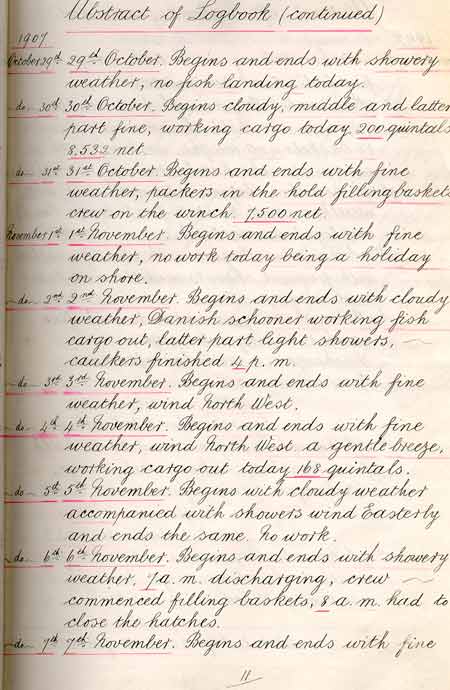 Abstract of Logbook (continued)
1907
October 29th 29th October. Begins and ends with showery
weather, no fish landing today.
do 30th 30th October. Begins cloudy, middle and latter
part fine, working cargo today 200 quintals
8,532 net.
do 31st 31st October. Begins and ends with fine
weather, packers in the hold filling baskets
crew on the winch. 7,500 net
November 1st 1st November. Begins and ends with fine
weather, no work today being a holiday
on shore.
do 2nd 2nd November. Begins and ends with cloudy
weather, Danish schooner working fish
cargo out, latter part light showers,
caulkers finished 4 p.m.
do 3rd 3rd November. Begins and ends with fine
weather, wind North West.
do 4th 4th November. Begins and ends with fine
weather, wind North West a gentle breeze,
working cargo out today 168 quintals.
do 5th 5th November. Begins with cloudy weather
accompanied with showers wind Easterly
and ends the same. No work.
do 6th 6th November. Begins and ends with showery
weather, 7 a.m. discharging, crew
commenced filling baskets, 8 a.m. had to
close the hatches.
do 7th 7th November. Begins and ends with fine
11